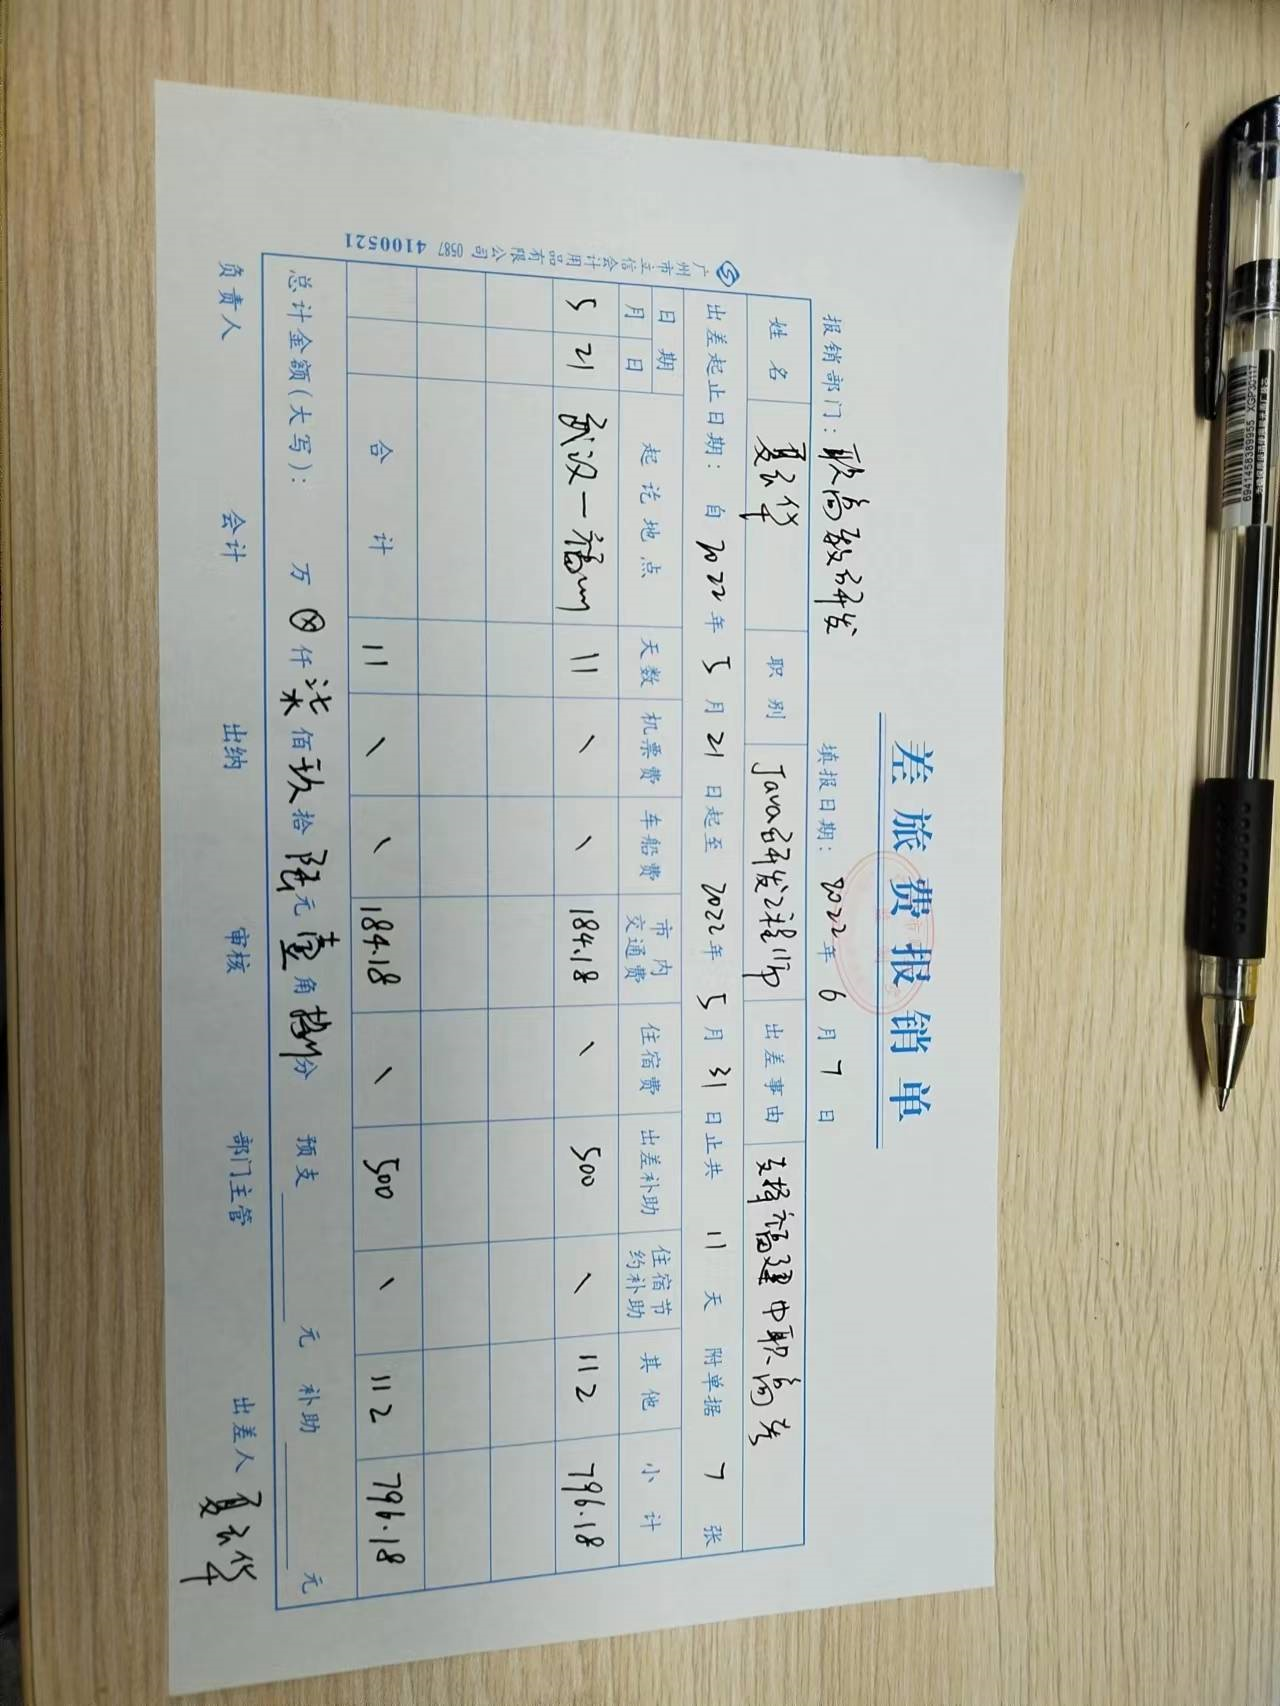 差旅费报销单
报销部门：职高教研发 填报日期：2022年6月7日
姓名 夏云华 职别 Java研发工程师 出差事由 支撑福建中职高考
出差起止日期：自2022年5月21日起至2022年5月31日止共11天 附单据7张
日期 起讫地点 天数 机票费 车船费 市内交通费 住宿费 出差补助 住宿节约补助 其他 小计
月 日
5 21 武汉—福州 11 \ \ 184.18 \ 500 \ 112 796.18
合计 11 \ \ 184.18 \ 500 \ 112 796.18
总计金额(大写)： 万⊗仟柒佰玖拾陆元壹角捌分 预支 元 补助 元
负责人 会计 出纳 审核 部门主管 出差人 夏云华
广州市立信会计用品有限公司 0587 4100521
6941458389955 XGP30117